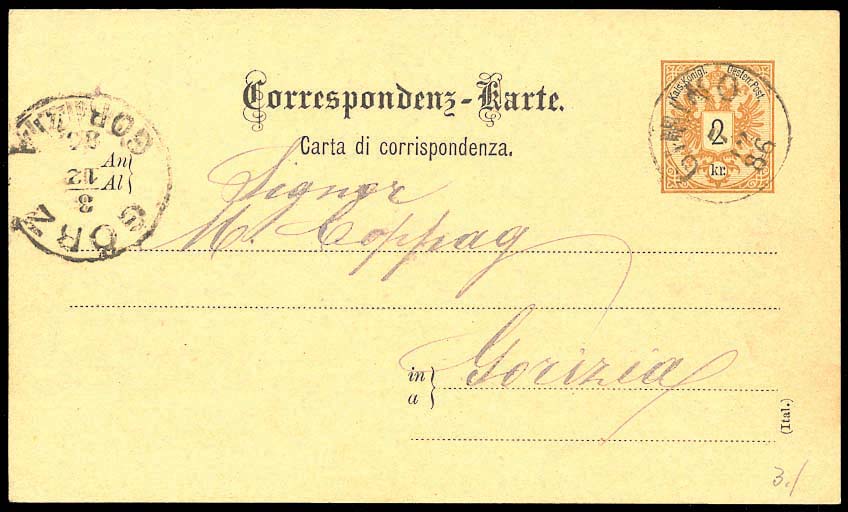 Correspondenz-Karte.
Carta di corrispondenza.
Kais. Königl. Oesterr. Post.
2
kr.
GÖRZ
GORIZIA
An
Al
3
12
86
Signor
M. Coppag
in
a
Gorizia
(Ital.)
3./